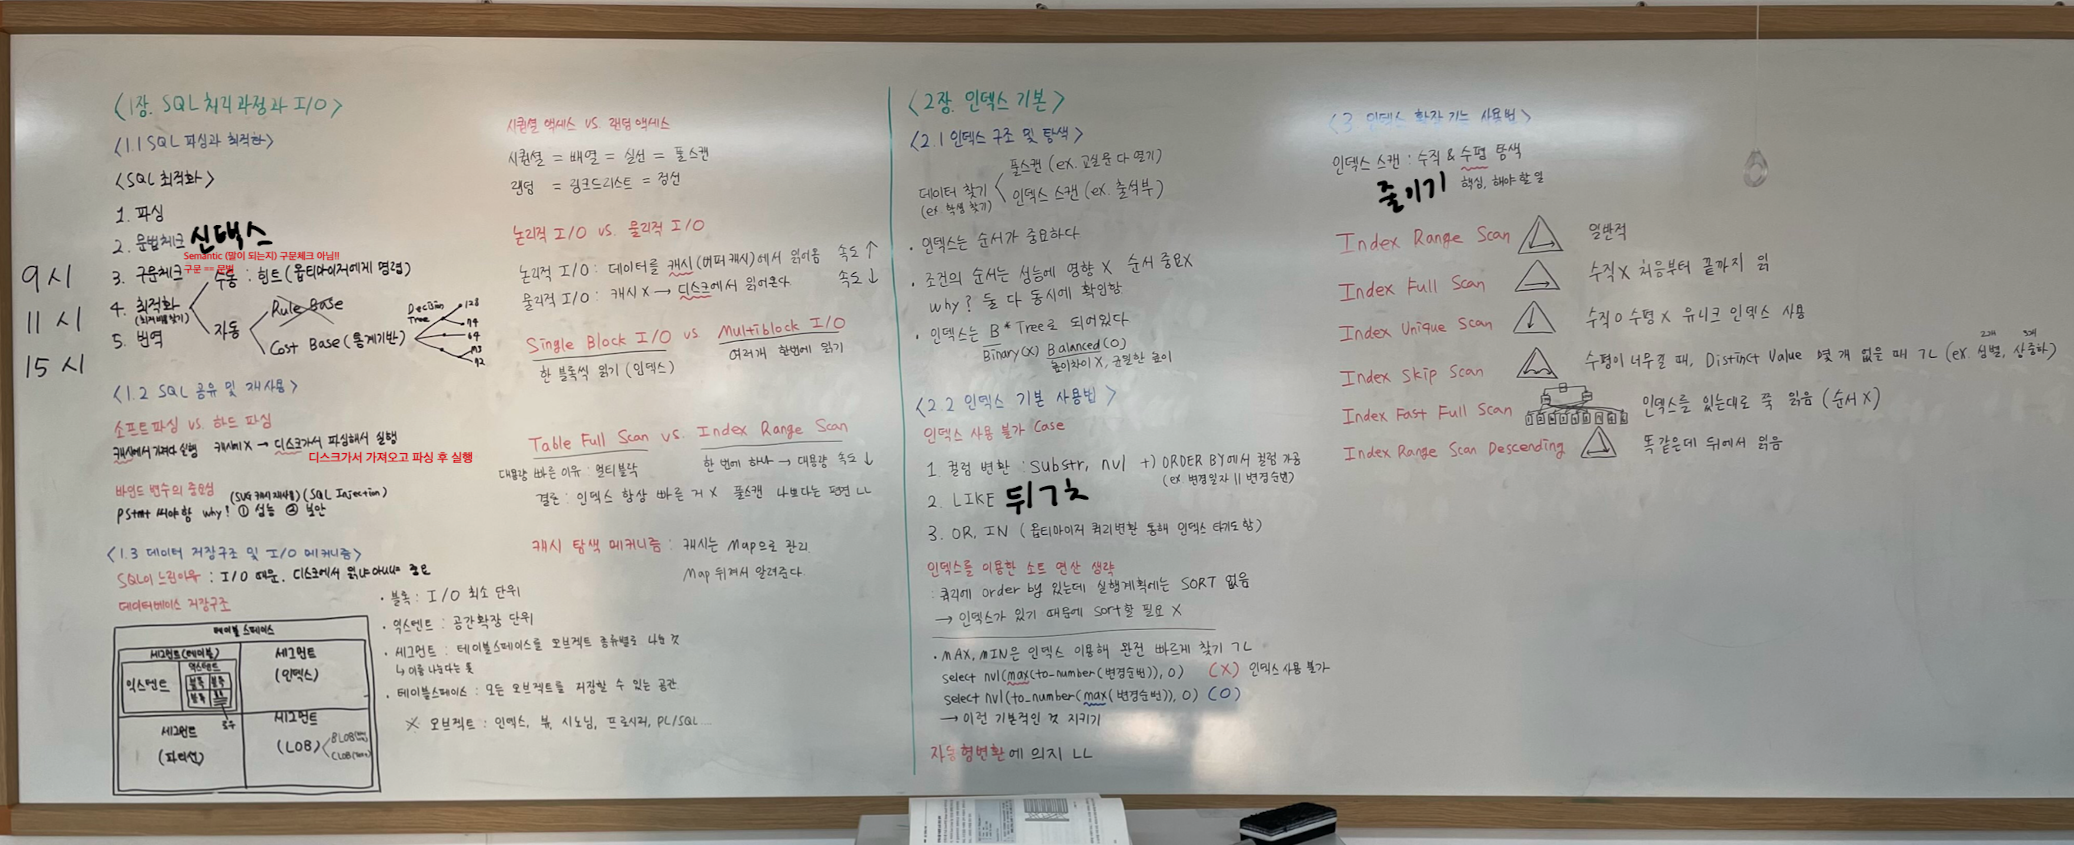 9시
11시
15시
<1장. SQL 처리과정과 I/O>
<1.1 SQL 파싱과 최적화>
<SQL 최적화>
1. 파싱
2. 문법체크 신택스
Semantic (말이 되는지) 구문체크 아님!!
구문 == 문법
3. 구문체크
4. 최적화
수동 : 힌트 (옵티마이저에게 명령)
자동
Rule Base
Cost Base (통계기반)
Decision Tree
128
74
64
193
92
5. 번역
<1.2 SQL 공유 및 재사용>
소프트파싱 vs. 하드 파싱
캐시에서 가져다 실행 캐시미X → 디스크가서 파싱해서 실행
디스크가서 가져오고 파싱 후 실행
바인드 변수의 중요성
(SVG 캐시 재사용) (SQL Injection)
Pstmt 써야함 why? ① 성능 ② 보안
<1.3 데이터 저장구조 및 I/O 메커니즘>
SQL이 느린이유 : I/O 때문. 디스크에서 읽냐 아니냐 중요
데이터베이스 저장구조
테이블 스페이스
세그먼트(테이블)
익스텐트
익스텐트
블록 블록
블록
로우
세그먼트
(인덱스)
세그먼트
(파티션)
세그먼트
(LOB)
BLOB
CLOB
· 블록 : I/O 최소 단위
· 익스텐트 : 공간확장 단위
· 세그먼트 : 테이블스페이스를 오브젝트 종류별로 나눈 것
↳ 이를 나눈다는 뜻
· 테이블스페이스 : 모든 오브젝트를 저장할 수 있는 공간
※ 오브젝트 : 인덱스, 뷰, 시노님, 프로시저, PL/SQL...
시퀀셜 액세스 VS. 랜덤 액세스
시퀀셜 = 배열 = 실선 = 풀스캔
랜덤 = 링크드리스트 = 점선
논리적 I/O vs. 물리적 I/O
논리적 I/O : 데이터를 캐시(버퍼캐시)에서 읽어옴 속도 ↑
물리적 I/O : 캐시 X → 디스크에서 읽어온다 속도 ↓
Single Block I/O vs Multiblock I/O
한 블록씩 읽기 (인덱스)
여러개 한번에 읽기
Table Full Scan vs. Index Range Scan
대용량 빠른 이유 : 멀티블락
한 번에 하나 → 대용량 속도 ↓
결론 : 인덱스 항상 빠른 거 X 풀스캔 나쁘다는 편견 ㄴㄴ
캐시 탐색 메커니즘 : 캐시는 Map으로 관리
Map 뒤져서 알려준다
<2장. 인덱스 기본>
<2.1 인덱스 구조 및 탐색>
데이터 찾기
(ex. 학생 찾기)
풀스캔 (ex. 교실문 다 열기)
인덱스 스캔 (ex. 출석부)
· 인덱스는 순서가 중요하다
· 조건의 순서는 성능에 영향 X 순서 중요X
why? 둘 다 동시에 확인함
· 인덱스는 B* Tree로 되어있다
Binary(X) Balanced(O)
높이차이 X, 균일한 높이
<2.2 인덱스 기본 사용법>
인덱스 사용 불가 Case
1. 컬럼 변환 : Substr, nvl +) ORDER BY에서 컬럼 가공
(ex. 변경일자 || 변경순번)
2. LIKE 뒤 ㄱㅊ
3. OR, IN (옵티마이저 쿼리변환 통해 인덱스 타기도 함)
인덱스를 이용한 소트 연산 생략
: 쿼리에 order by 있는데 실행계획에는 SORT 없음
→ 인덱스가 있기 때문에 sort할 필요 X
· MAX, MIN은 인덱스 이용해 완전 빠르게 찾기 ㄱㄴ
select nvl(max(to_number(변경순번)), 0) (X) 인덱스 사용 불가
select nvl(to_number(max(변경순번)), 0) (O)
→ 이런 기본적인 것 지키기
자동형변환에 의지 ㄴㄴ
<3 인덱스 확장기능 사용법>
인덱스 스캔 : 수직 & 수평 탐색
줄이기 핵심, 해야 할 일
Index Range Scan 일반적
Index Full Scan 수직 X 처음부터 끝까지 읽
Index Unique Scan 수직 O 수평 X 유니크 인덱스 사용
2개 3개
Index Skip Scan 수평이 너무 길 때, Distinct Value 몇 개 없을 때 ㄱㄴ (ex. 성별, 상중하)
Index Fast Full Scan 인덱스를 있는대로 쭉 읽음 (순서 X)
Index Range Scan Descending 똑같은데 뒤에서 읽음